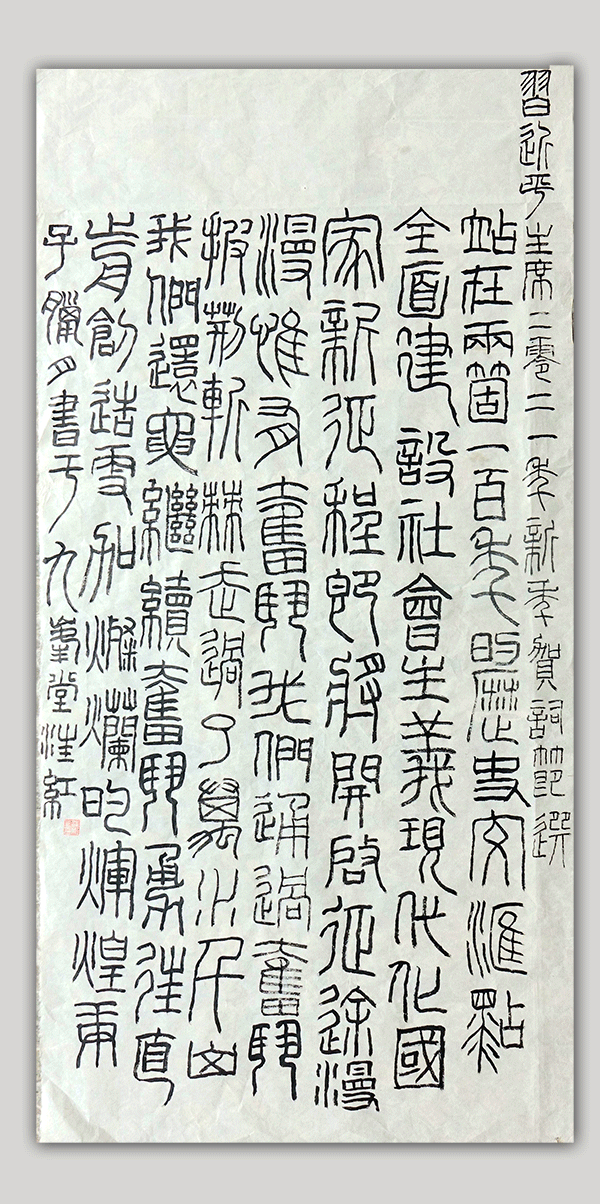 習近平主席二零二一年新年賀詞節選
站在兩箇一百年的歷史交匯點
全面建設社會主義現代化國
家新征程即將開啟征途漫
漫惟有奮鬥我們通過奮鬥
披荊斬棘走過了萬水千山
我們還要繼續奮鬥勇往直
前創造更加燦爛的煇煌庚
子臘月書于九峯堂汪紅